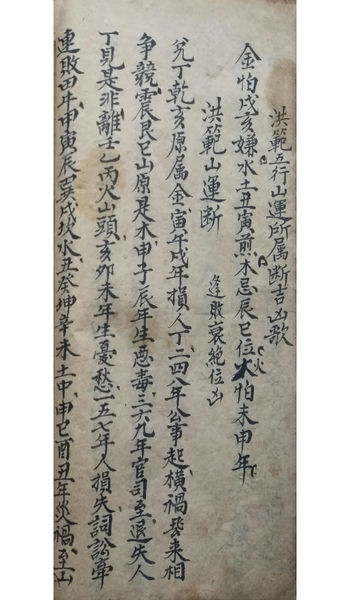 洪範五行山運所属断吉凶歌
金怕戌亥嫌水土丑寅煎木忌辰巳位火怕未申年
洪範山運断 逢敗衰絶位凶
兊丁乾亥原属金寅午戌年損人丁二四八年公事起横禍発来相
争競震艮巳山原是木申子辰年生悪毒三六九年官司至退失人
丁見是非離壬乙丙火山頭亥卯未年生憂愁一五七年人損失詞訟牽
連敗田牛甲寅辰巽戌坎水丑癸坤辛未土中申巳酉丑年災禍至山